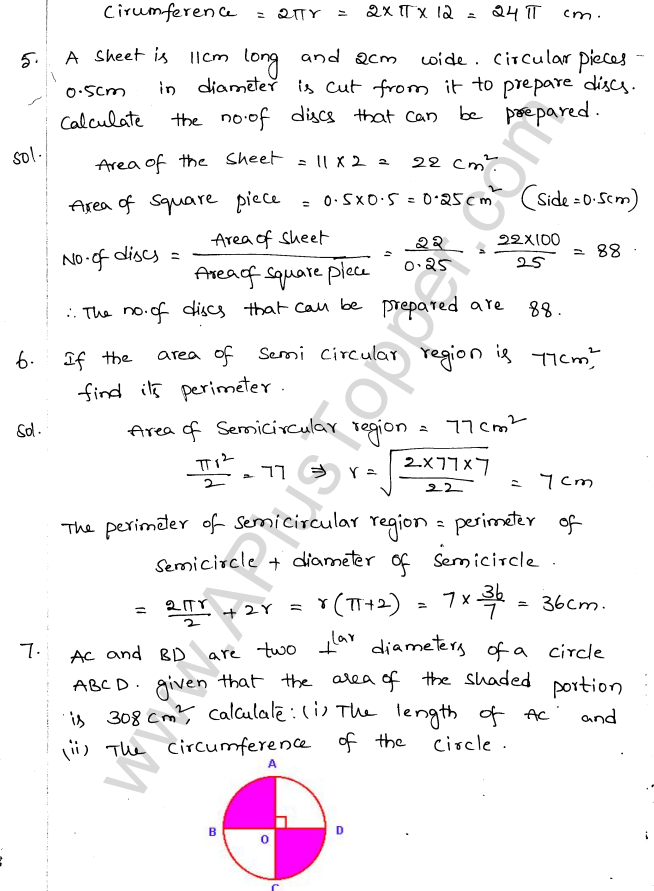 Cirumference = 2πr = 2×π×12 = 24π cm.
5. A sheet is 11cm long and 2cm wide. Circular pieces
0.5cm in diameter is cut from it to prepare discs.
Calculate the no.of discs that can be prepared.
Sol. Area of the sheet = 11×2 = 22 cm².
Area of square piece = 0.5×0.5 = 0.25cm² (Side=0.5cm)
No.of discs = Area of sheet / Area of square piece = 22/0.25 = 22×100/25 = 88.
∴ The no.of discs that can be prepared are 88.
6. If the area of semi circular region is 77cm²,
find its perimeter.
Sol. Area of semicircular region = 77cm²
πr²/2 = 77 ⇒ r = √(2×77×7/22) = 7cm
The perimeter of semicircular region = perimeter of
semicircle + diameter of semicircle.
= 2πr/2 + 2r = r(π+2) = 7 × 36/7 = 36cm.
7. AC and BD are two ⊥lar diameters of a circle
ABCD. given that the area of the shaded portion
is 308cm², calculate: (i) The length of AC and
(ii) The circumference of the circle.
A
B O D
C
www.APlusTopper.com